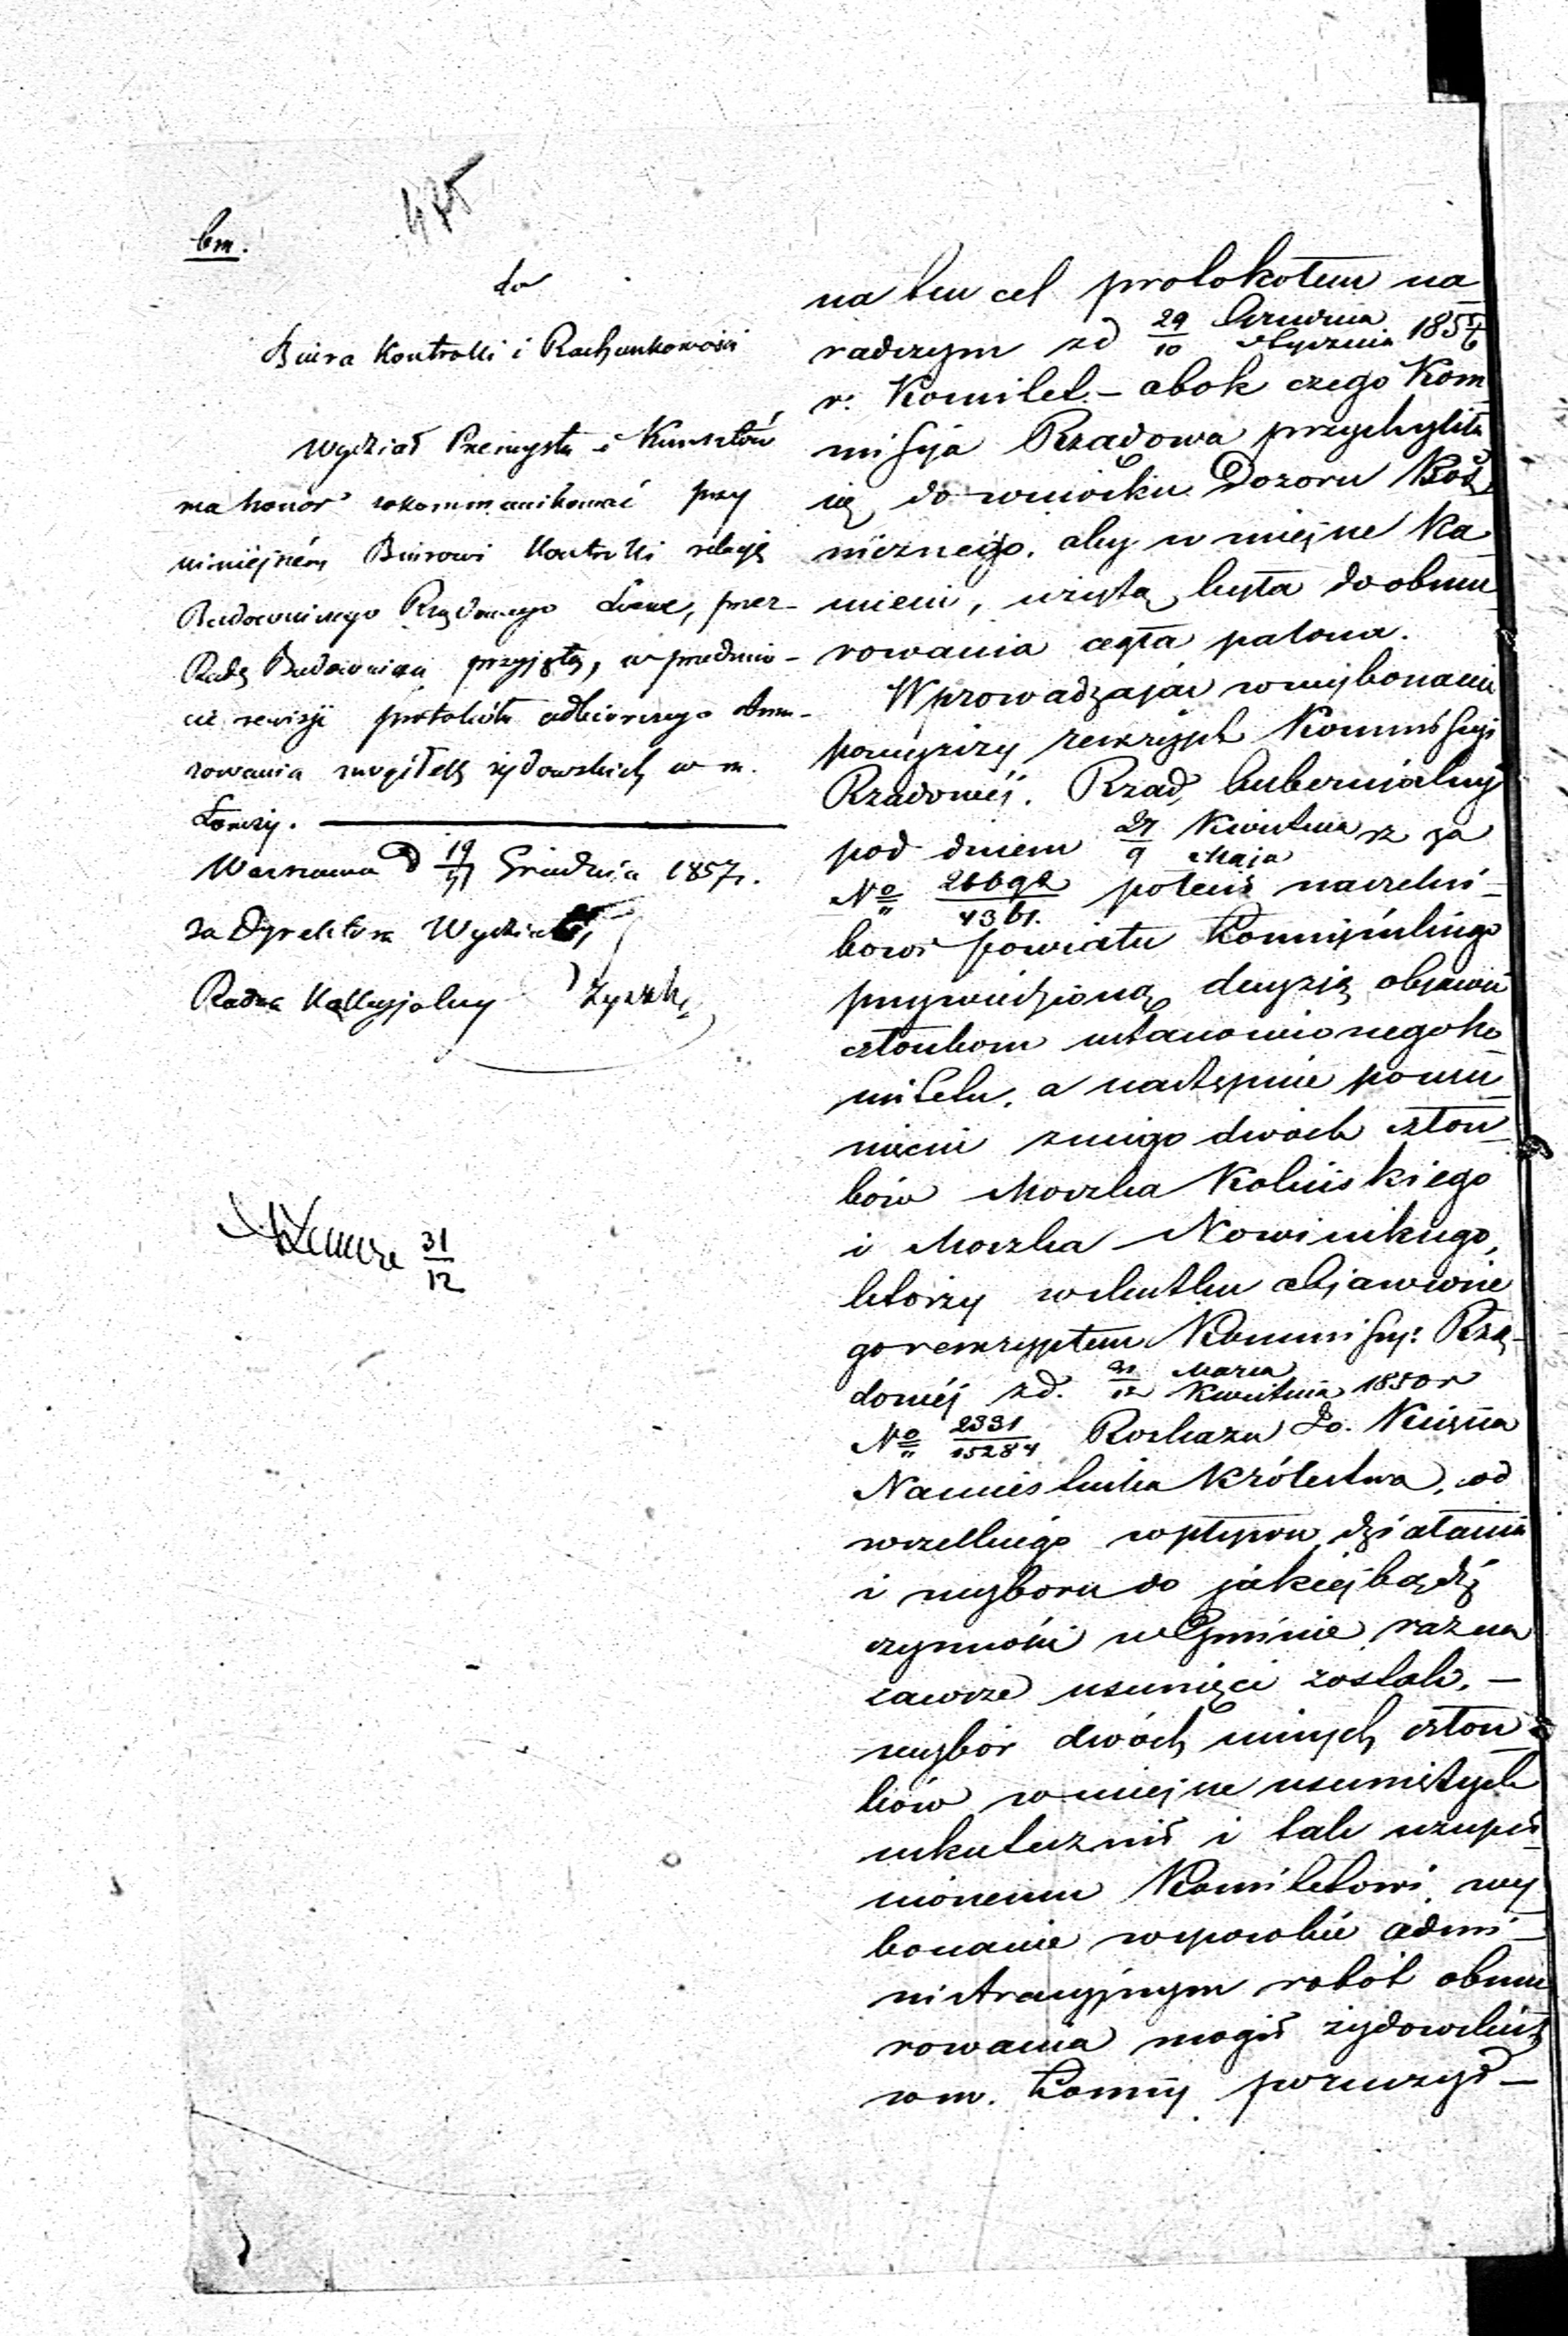 475
bm.
do
Biura Kontrolli i Rachunkowości
Wydział Przemysłu i Kunsztów
ma honor zakommunikować przy
niniejszém Biurowi Kontrolli relacyę
Budowniczego Rządowego przez
Radę Budowniczą przyjętą, w przedmio-
cie rewizji protokółu odbiorczego obmu-
rowania mogiłek żydowskich w m.
Łomży.
Warszawa d 19/31 Grudnia 1857 r.
za Dyrektora Wydziału,
Radca Kollegjalny
31/12
na ten cel protokołem na
radczym z d 29/10 Grudnia/Stycznia 1855/6
r. Komitet. – obok czego Kom
missyja Rządowa przychyliła
się do wniosku Dozoru Boż
niczego, aby w miejsce ka
mieni, użytą była do obmu
rowania cegła palona.
Wprowadzając w wykonanie
powyższy reskrypt Kommissyi
Rządowéj, Rząd Gubernialny
pod dniem 27/9 Kwietnia/Maja rz za
No 26692/4361. polecił naczelni-
kowi powiatu Łomżyńskiego
przywiedzioną decyzją objawić
członkom ustanowionego ko
mitetu, a następnie po usu
nięciu z niego dwóch człon
ków Moszka Kolińskiego
i Moszka Nowińskiego,
którzy w skutku objawione
go reskryptem Kommissyi Rzą-
dowéj z d. 31/12 Marca/Kwietnia 1850 r
No 2331/15284 Rozkazu Jo. Księcia
Namiestnika Królestwa, od
wszelkiego wpływu działania
i wyboru do jakiejbądź
czynności w Gminie raz na
zawsze usunięci zostali, –
wybór dwóch innych człon
ków w miejsce usuniętych
uskutecznił i tak uzupeł
nionemu Komitetowi wy
konanie w sposobie admi-
nistracyjnym robót obmu
rowania mogił żydowskich
w m. Łomży poruczył –